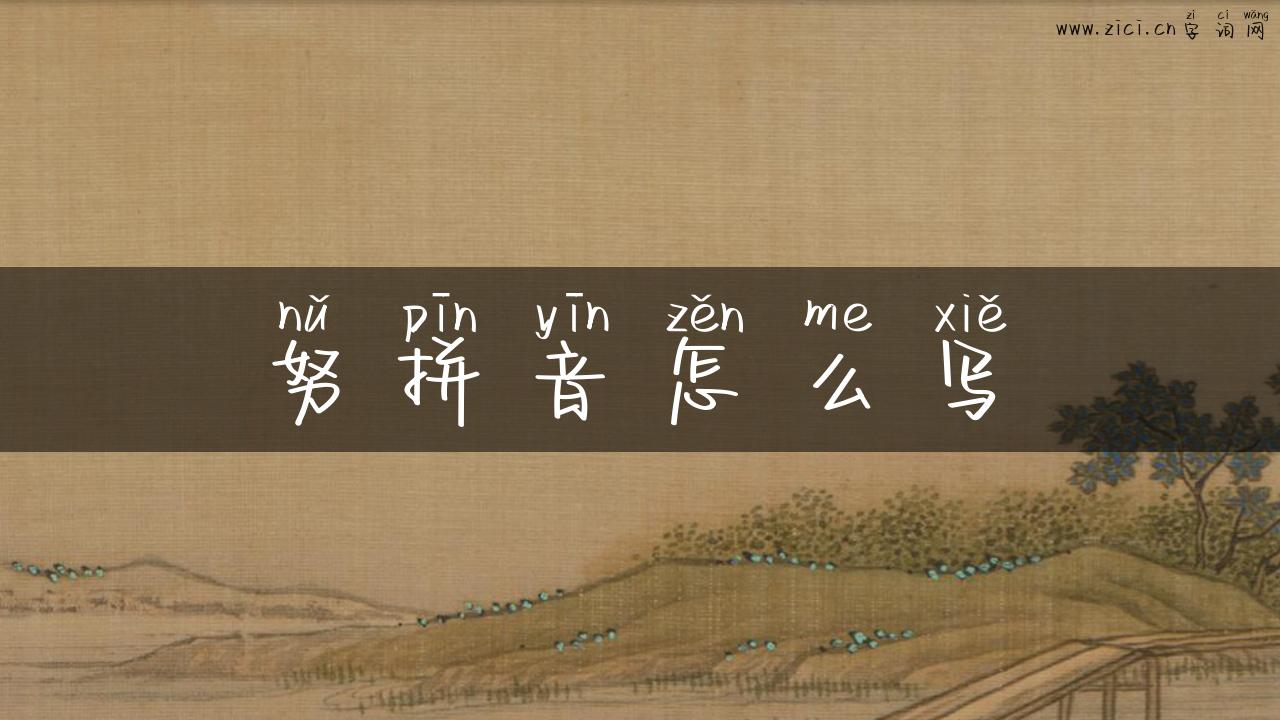 zì cí wǎng
www.zici.cn字词网
nǔ pīn yīn zěn me xiě
努拼音怎么写